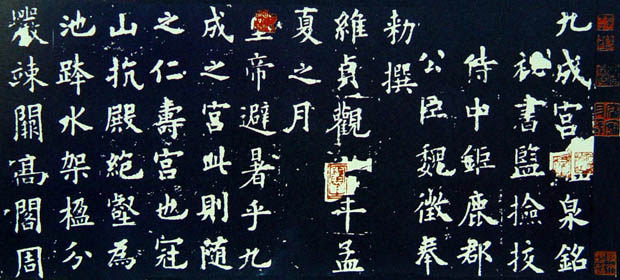 九成宮泉銘
秘書監撿挍
侍中鉅鹿郡
公臣魏徵奉
勑撰
維貞觀年孟
夏之月
帝避暑乎九
成之宮此則随
之仁壽宮也冠
山抗殿絕壑為
池跨水架楹分
巖竦闕高閣周